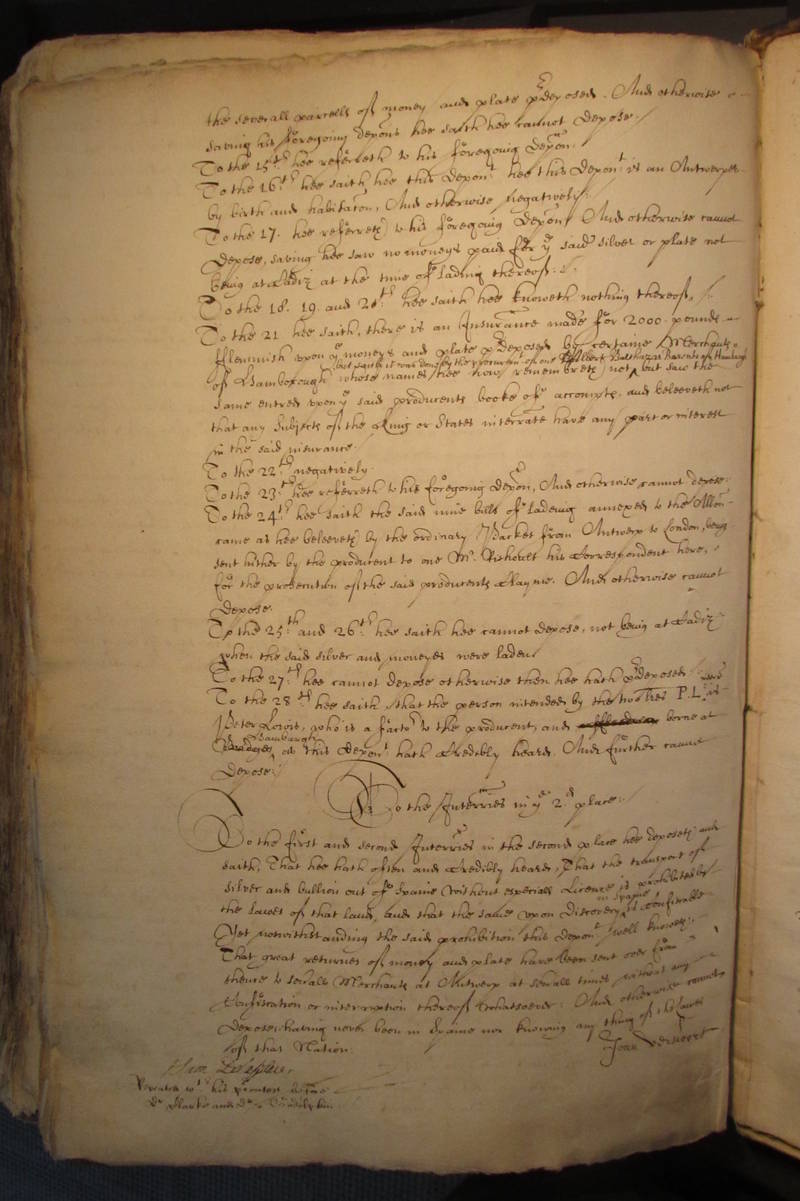 the severall parcells of money and plate p<sup>r</sup>deposed. And otherwise
saving his foregoing depon<sup>s</sup> hee saith hee cannot depose./
To the 15<sup>th</sup> hee referreth to his foregoing depon.
To the 16<sup>th</sup> hee saith hee this depon<sup>t</sup> is an Antwerper
by birth and habitacon, And otherwise negatively./
To the 17. hee referreth to his foregoing depon, And otherwise cannot
depose, saving hee saw no moneys paid for y<sup>e</sup> said silver or plate not
being at Cadiz at the time of lading thereof./.
To the 18. 19. and 20<sup>th</sup> hee saith hee knoweth nothing thereof./.
To the 21 hee saith, there is an Insurance made for 2000 pounds
fflemmish upon y<sup>e</sup> moneys and plate p<sup>r</sup>deposed by certaine Merchants
but saith it was done by the procurement of one Albert Balthazar Berents of Hamburgh
of Hamborough whose names hee now remembreth not, but saw the
same entred upon y<sup>e</sup> said producents booke of accompts, and beleeveth not
that any Subjects of the King or States interrate have any part or interest
in the said insurance.
To the 22<sup>th</sup> negatively.
To the 23<sup>th</sup> hee referreth to his foregoing depon, And otherwise cannot depose.
To the 24<sup>th</sup> hee saith the said nine bills of ladeing annexed to the Allon
came as hee beleeveth by the ordinary Packet from Antwerp to London, being
sent hither by the producent to one M<sup>r</sup> his Correspondent here,
for the prosecution of the said producents Clayme. And otherwise cannot
depose.
To the 25<sup>th</sup> and 26<sup>th</sup> hee saith hee cannot depose, not being at Cadiz
when the said silver and moneyes were laden.
To the 27<sup>th</sup> hee cannot depose otherwise then hee hath p<sup>r</sup>deposed.
To the 28<sup>th</sup> hee saith, that the person intended by the two l<sup>res</sup> P.L. is
Peter Lowis, who is a facto<sup>r</sup> to the producent, and borne at
Hamburgh
as this depon<sup>t</sup> hath credibly heard. And further cannot
depose./
To the Interr<sup>ies</sup> in y<sup>e</sup> 2<sup>d</sup> place./
To the first and second Interr<sup>ies</sup> in the second place hee deposeth and
saith, That hee hath often and credibly heard, That the transport of
silver and bullion out of Spaine without especiall Licence is prohibited by
in Spaine
the lawes of that land, and that the same upon discovery is confiscable
Yet notwithstanding the said prohibition this depon<sup>t</sup> well knoweth
That great returnes of money and plate have been sent over from
thence to severall Merchants at Antwerp at severall times without any
Confiscation or interruption thereof whatsoever: And otherwise cannot
depose having never been in Spaine nor knowing any thing of the lawes
of that Nation.
Repeated w<sup>th</sup> his before
D<sup>r</sup> Clarke and D<sup>r</sup> Godolphin.